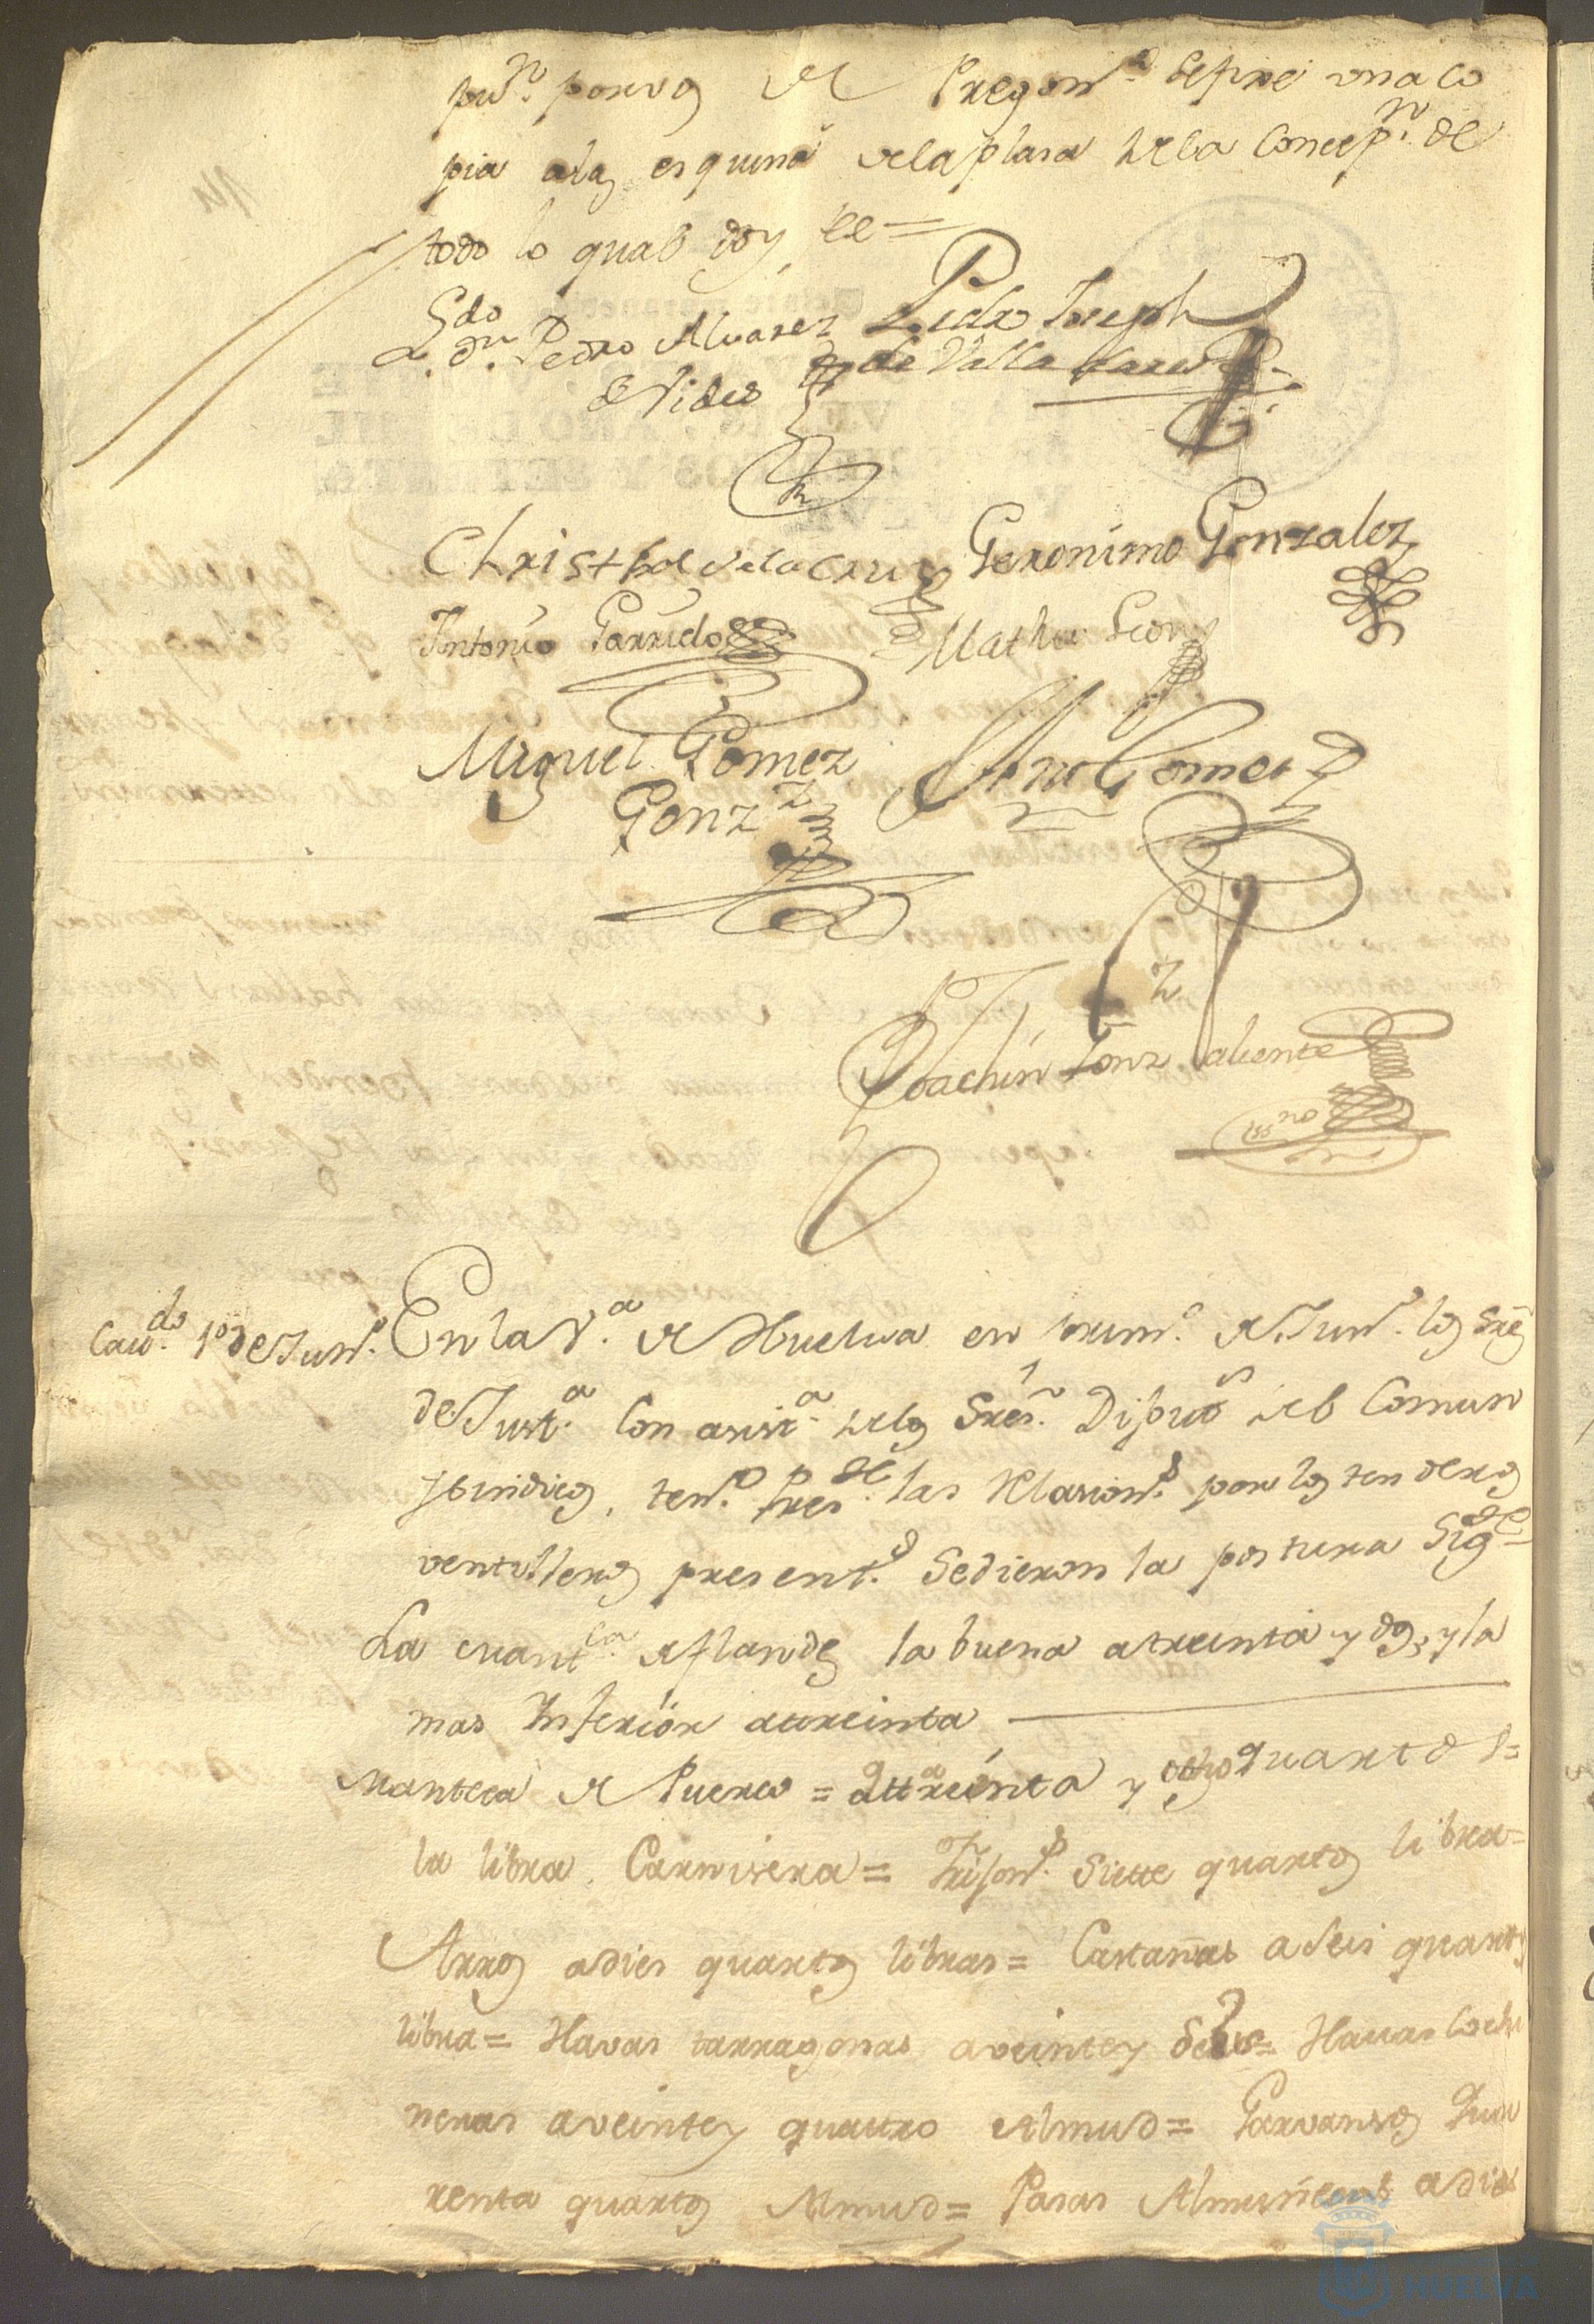 pu.n por vz de Pregon.o se fixó una co
pia a las esquina de la plasa de la Concep.n de
todo lo qual doy fe =
L.do d.n Pedro Alvarez
Pedro Joseph
de Valladares
Christobal de la Cruz
Geronimo Gonzalez
Antonio Garrido
Matheo
Miguel Gomez
Gonz.z
Gomez
Joachin Gonz.z Valiente
ess.no
Cav.do 1º de Jun.o
En la V.a de Huelva en prim.o de Jun.o los Sres
de Just.a Con asist.a de los Sres. Diput.s del Comun
y Sindico, ten.do Pres.te las Relasion.s por los tenderos
ventilleros present.s Se dieron la postura Sig.te
La quart.la de flandes la buena a treinta y dos, y la
mas Inferior a treinta
Manteca de Puerco = a treinta y ocho quartos =
la libra Carnisera = Frison.s Siette quartos libra =
Arros a dies quartos libras = Castañas a Seis quartos
libra = Havas tarragonas a veinte y Seis = Havas Cochi
neras a veinte y quatro Almud = Garvansos Qua
renta quartos Almud = Pasas Almuñecas a dies
HUELVA